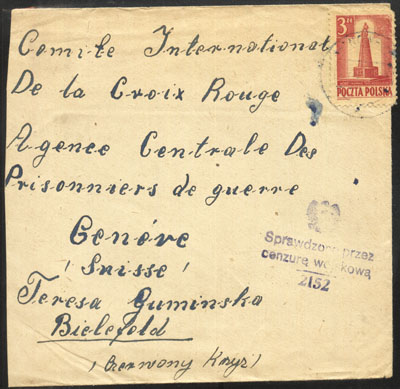 Comite International
De la Croix Rouge
Agence Centrale Des
Prisonniers de guerre
Genéve
(Suisse)
Teresa Guminska
Bielefeld
(Czerwony Krzyż)
3 zł
POCZTA POLSKA
Sprawdzone przez
cenzurę wojskową
2152